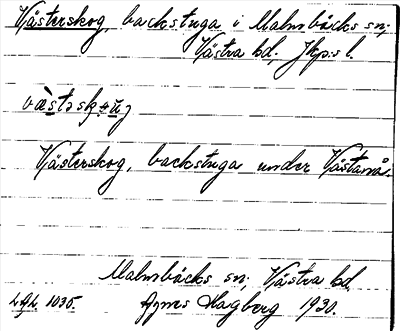 Västerskog, backstuga i Malmbäcks sn;
Västra hd, Jkp:s l.
Västerskog, backstuga under Västanå.
Malmbäcks sn; Västra hd
Agnes Hagberg 1930.